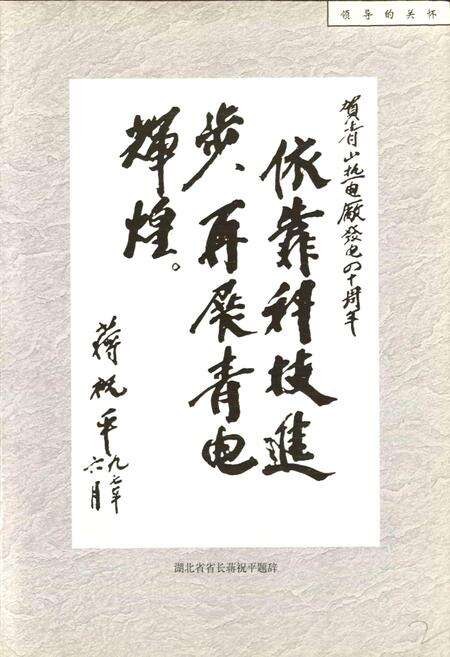 领导的关怀
賀青山热电廠發电四十周年
依靠科技進
步、再展青电
輝煌。
蒋祝平
九七年
六月
湖北省省长蒋祝平题辞
2